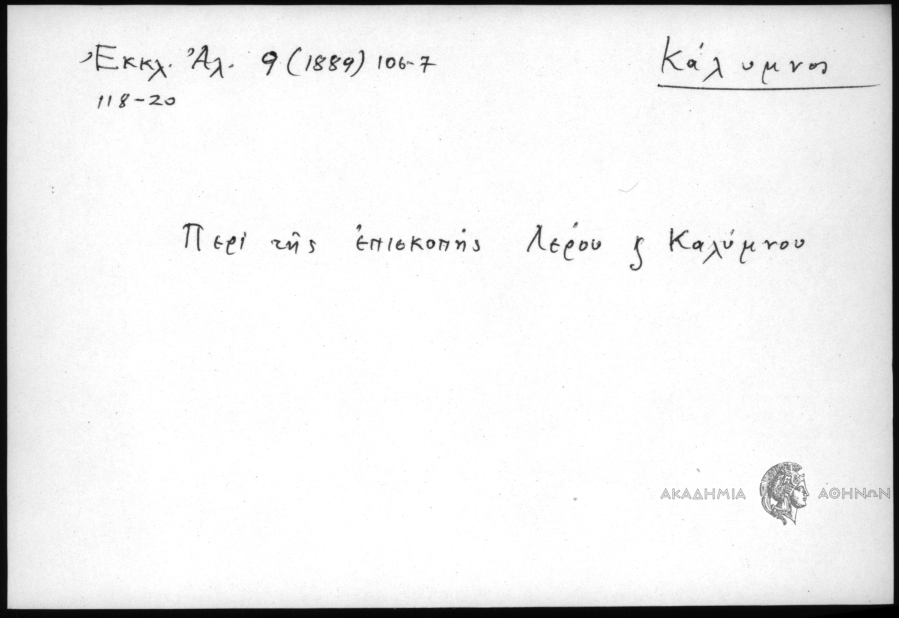 Ἐκκλ. Ἀλ. 9 (1889) 106-7
118-20
Κάλυμνος
Περὶ τῆς ἐπισκοπῆς Λέρου ϗ Καλύμνου
ΑΚΑΔΗΜΙΑ ΑΘΗΝΩΝ